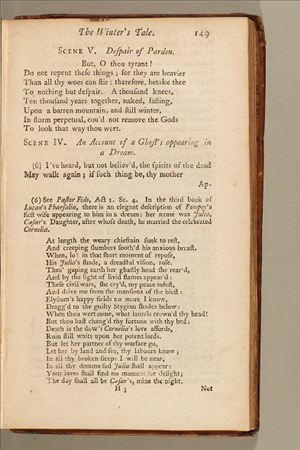 The Winter's Tale. 149
SCENE V. Despair of Pardon.
But, O thou tyrant!
Do not repent these things; for they are heavier
Than all thy woes can stir: therefore, betake thee
To nothing but despair. A thousand knees,
Ten thousand years together, naked, fasting,
Upon a barren mountain, and still winter,
In storm perpetual, cou'd not remove the Gods
To look that way thou wert.
SCENE IV. An Account of a Ghost's appearing in
a Dream.
(6) I've heard, but not believ'd, the spirits of the dead
May walk again; if such thing be, thy mother
Ap-
(6) See Pastor Fido, Act 1. Sc. 4. In the third book of
Lucan's Pharsalia, there is an elegant description of Pompey's
first wife appearing to him in a dream; her name was Julia,
Cæsar's Daughter, after whose death, he married the celebrated
Cornelia.
At length the weary chieftain sunk to rest,
And creeping slumbers sooth'd his anxious breast.
When, lo! in that short moment of repose,
His Julia's shade, a dreadful vision, rose.
Thro' gaping earth her ghastly head she rear'd,
And by the light of livid flames appear'd:
These civil wars, she cry'd, my peace infest,
And drive me from the mansions of the blest:
Elysium's happy fields no more I know,
Dragg'd to the guilty Stygian shades below:
When thou wert mine, what laurels crown'd thy head!
But thou hast chang'd thy fortune with thy bed:
Death is the dow'r Cornelia's love affords,
Ruin still waits upon her potent lords.
But let her partner of thy warfare go,
Let her by land and sea, thy labours know;
In all thy broken sleeps I will be near,
In all thy dreams sad Julia shall appear:
Your loves shall find no moment for delight;
The day shall all be Cæsar's, mine the night.
H 3 Not